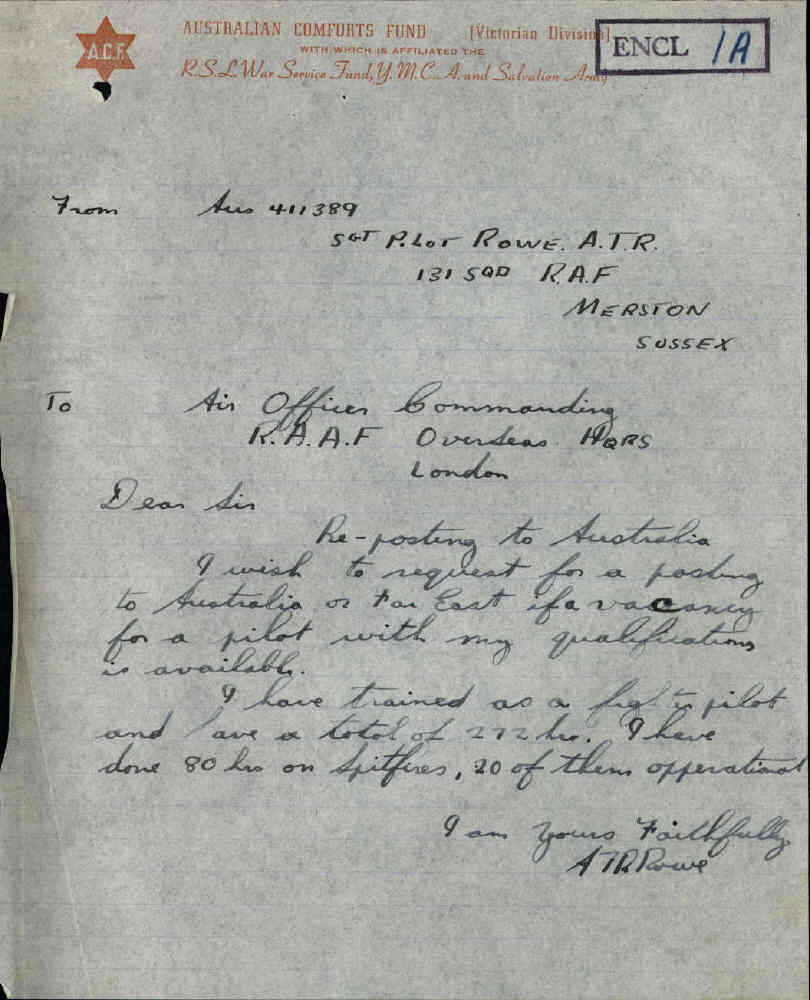 A.C.F.
AUSTRALIAN COMFORTS FUND [Victorian Division]
WITH WHICH IS AFFILIATED THE
R.S.L. War Service Fund, Y.M.C.A. and Salvation Army
ENCL 1A
From Aus 411389
SGT PILOT ROWE. A.T.R.
131 SQD R.A.F
MERSTON
SUSSEX
To Air Officer Commanding
R.A.A.F Overseas HQRS
London
Dear Sir
Re-posting to Australia
I wish to request for a posting
to Australia or Far East if a vacancy
for a pilot with my qualifications
is available.
I have trained as a fighter pilot
and have a total of 272 hrs. I have
done 80 hrs on Spitfires, 20 of them opperational
I am Yours Faithfully
ATR Rowe